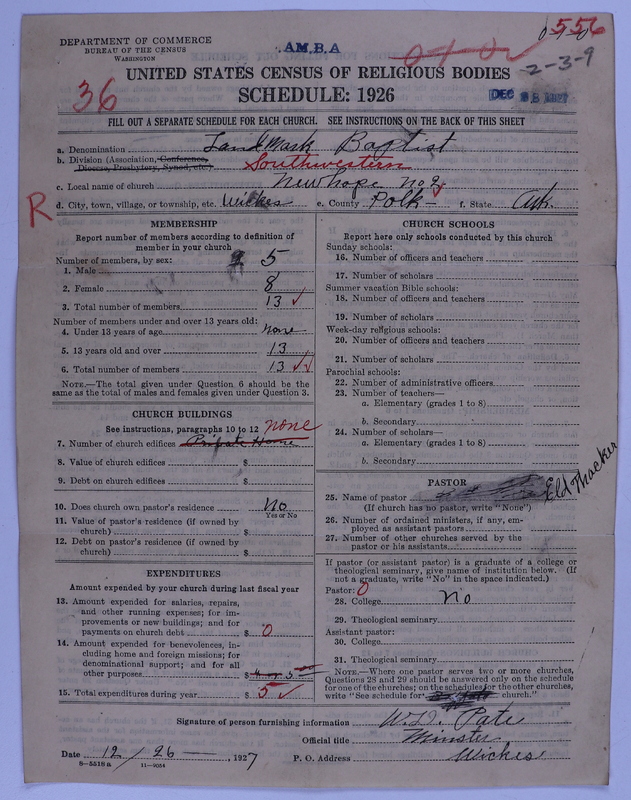 DEPARTMENT OF COMMERCE
BUREAU OF THE CENSUS
WASHINGTON
AMBA
556
2-3-9
36
UNITED STATES CENSUS OF RELIGIOUS BODIES
SCHEDULE: 1926
DEC
FILL OUT A SEPARATE SCHEDULE FOR EACH CHURCH. SEE INSTRUCTIONS ON THE BACK OF THIS SHEET
a. Denomination Landmark Baptist
b. Division (Association, Conference, Diocese, Presbytery, Synod, etc.) Southwestern
c. Local name of church New hope No 2
d. City, town, village, or township, etc. Wickes e. County Polk f. State Ark.
R
MEMBERSHIP
Report number of members according to definition of
member in your church
Number of members, by sex:
1. Male 5
2. Female 8
3. Total number of members 13
Number of members under and over 13 years old:
4. Under 13 years of age none
5. 13 years old and over 13
6. Total number of members 13
NOTE.—The total given under Question 6 should be the
same as the total of males and females given under Question 3.
CHURCH BUILDINGS
See instructions, paragraphs 10 to 12 none
7. Number of church edifices Private Home
8. Value of church edifices $
9. Debt on church edifices $
10. Does church own pastor's residence No
Yes or No
11. Value of pastor's residence (if owned by
church) $
12. Debt on pastor's residence (if owned by
church) $
EXPENDITURES
Amount expended by your church during last fiscal year
13. Amount expended for salaries, repairs,
and other running expenses; for im-
provements or new buildings; and for
payments on church debt $ 0
14. Amount expended for benevolences, in-
cluding home and foreign missions; for
denominational support; and for all
other purposes $ 4 or 5
15. Total expenditures during year $ 5
CHURCH SCHOOLS
Report here only schools conducted by this church
Sunday schools:
16. Number of officers and teachers
17. Number of scholars
Summer vacation Bible schools:
18. Number of officers and teachers
19. Number of scholars
Week-day religious schools:
20. Number of officers and teachers
21. Number of scholars
Parochial schools:
22. Number of administrative officers
23. Number of teachers—
a. Elementary (grades 1 to 8)
b. Secondary
24. Number of scholars—
a. Elementary (grades 1 to 8)
b. Secondary
PASTOR
25. Name of pastor Eld Thacker
(If church has no pastor, write "None")
26. Number of ordained ministers, if any, em-
ployed as assistant pastors
27. Number of other churches served by the
pastor or his assistants
If pastor (or assistant pastor) is a graduate of a college or
theological seminary, give name of institution below. (If
not a graduate, write "No" in the space indicated.)
Pastor: 0
28. College No
29. Theological seminary
Assistant pastor:
30. College
31. Theological seminary
NOTE.—Where one pastor serves two or more churches,
Questions 28 and 29 should be answered only on the schedule
for one of the churches; on the schedules for the other churches,
write "See schedule for church."
Signature of person furnishing information W. D. Pate
Official title Minster
Date 12/26, 1927 P. O. Address Wickes
8-5518a 11-9054